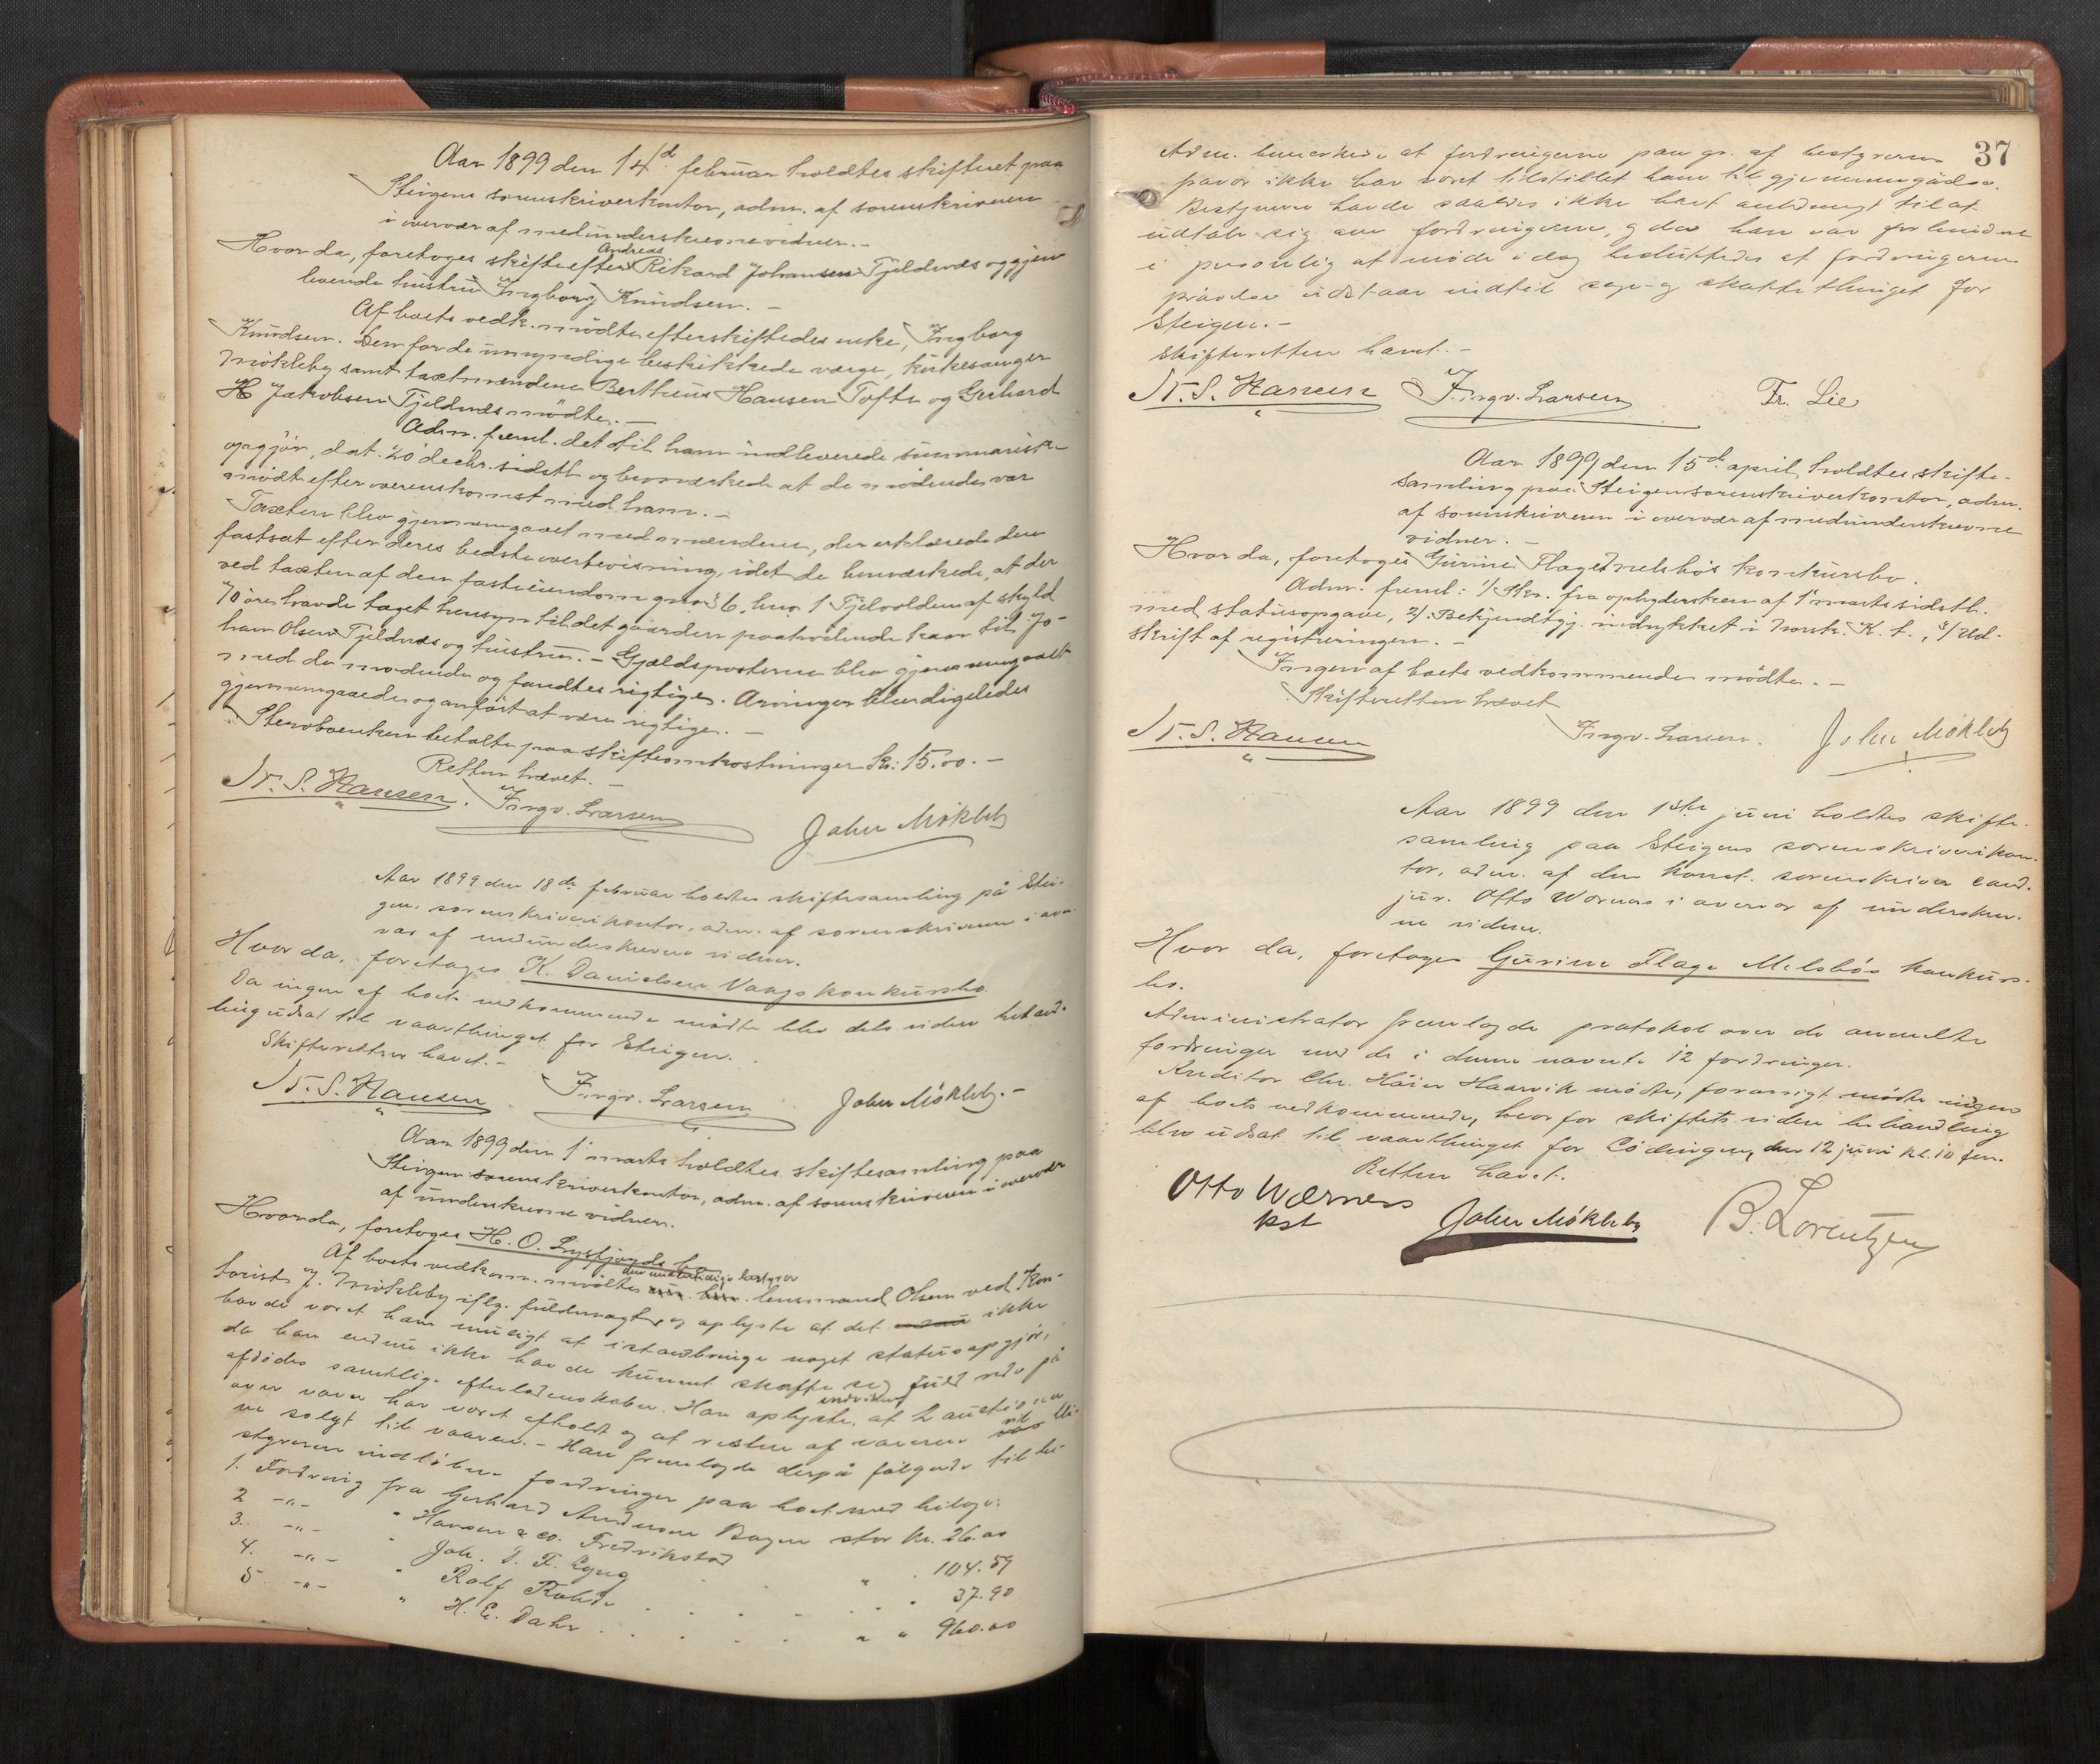 Aar 1899 den 14de februar holdtes skifteret paa
Steigens sorenskriverkontor, adm. af sorenskriveren
i overvær af medunderskrevne vidner. -
Hvor da, foretoges skifte efter Andreas Rikard Johansen Tjeldnæs og gjen
levende hustru Ingborg Knudsen. -
Af boets vedk. mødte efterskiftedes enke, Ingborg
Knudsen. Den for de umyndige beskikkede værge, kirkesanger
Møkleby samt taxtmændene Bertheus Hansen Tofte og Gerhard
H Jakobsen Tjeldnæs mødte. -
Adm. freml. det til ham indleverede summariske
opgjør, dat. 20 decbr. sidstl. og bemærkede at de mødende var
mødt efter overenskomst med ham. -
Taxten blev gjennemgaaet med mændene, der erklærede den
fastsat efter deres bedste overbevisning, idet de bemærkede, at der
ved taxten af den faste eiendom gno 36, bno 1 Tjelvolden af skyld
70 øre havde taget hensyn til det gaarden paahvilende kaar til Jo-
han Olsen Tjeldnæs og hustru. - Gjældsposterne blev gjennemgaaet
med de mødende og fandtes rigtige. Arvinger blev ligeledes
gjennemgaaede og anført at være rigtige. -
Stervboenken betalte paa skifteomkostninger Kr: 15.00. -
Retten hævet.
N. S. Hansen. Ingv. Larsen John Møkleby
Aar 1899 den 18de februar holdtes skiftesamling på Stei-
gens sorenskriverikontor, adm. af sorenskriveren i over
vær af medunderskrevne vidner.
Hvor da, foretoges K. Danielsen Vaags konkursbo.
Da ingen af boets vedkommende mødte blev dets videre behand-
ling udsat til vaarthinget for Steigen.
Skifteretten hævet. -
N. S. Hansen Ingv. Larsen John Møkleby. -
Aar 1899 den 1 marts holdtes skiftesamling paa
Steigen sorenskriverkontor, adm. af sorenskriveren i overvær
af underskrevne vidner.
Hvor da, foretoges H. O. Lysfjords bo
Af boets vedkomm. mødte den midlertidige bestyrer lensmand Olsen ved Kon-
torist J. Møkleby iflg. fuldmagt og oplyste at det ikke
havde været ham muligt at istandbringe noget statusopgjør,
da han endnu ikke havde kunnet skaffe sig fuld rede på
afdødes samtlige efterladenskaber. Han oplyste endvidere, at 2 auktioner
over varer har været afholdt og at resten af varerne vil bli-
ve solgt til vaaren. - Han fremlagde derpå følgende til be-
styreren indløbne fordringer paa boet med bilage:
1. Fordring fra Gerhard Andersen Bogen stor kr. 26.00
2 -"- " Hansen & co. Fredrikstad " . 104.59
3. -"- " Joh. D. F. Lyng . . . 37.90
4. -"- " Rolf Rohde
5 -"- " H. C. Dahr . . . . " " 960.00
37
Adm. bemerkede at fordringerne paa gr. af bestyrerens
fravær ikke har været tilstillet ham til gjennemgåelse.
Bestyreren havde saaledes ikke havt anledning til at
udtale sig om fordringerne, og da han var forhindret
i personlig at møde i dag besluttedes at fordringernes
prøvelse udstaar indtil sage- og skattethinget for
Steigen. -
Skifteretten hævet. -
N. S. Hansen Ingv. Larsen Fr. Lie
Aar 1899 den 15de april, holdtes skifte-
samling paa Steigen sorenskriverkontor, adm.
af sorenskriveren i overvær af medunderskrevne
vidner. -
Hvor da, foretoges Gurine Flage Melsbøs konkursbo.
Adm. freml: 1/ Skr. fra opbydersken af 1 marts sidstl.
med statusopgave, 2/. Bekjendtgj. indrykket i Norsk. K. t., 3/ Ud-
skrift af registreringen. -
Ingen af boets vedkommende mødte. -
Skifteretten hævet
N. S. Hansen Ingv. Larsen. John Møkleby
Aar 1899 den 1ste juni holdtes skifte-
samling paa Steigens sorenskriverikon-
tor, adm. af den konst. sorenskriver cand.
jur. Otto Werness i overvær af underskrev-
ne vidner.
Hvor da, foretoges Gurine Flage Melsbøs konkurs-
bo.
Administrator fremlagde protokol over de anmeldte
fordringer med de i denne nævnte 12 fordringer.
Kreditor Chr. Høier Haarvik mødte, forøvrigt mødte ingen
af boets vedkommende, hvorfor skiftets videre behandling
blev udsat til vaarthinget for Lødingen, den 12 juni kl. 10 fm.
Retten hævet.
Otto Werness
kst John Møkleby B. Lorentzen